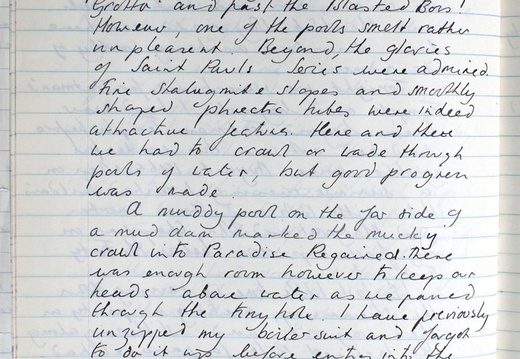 Grotto and past the Blasted Boss!
However, one of the pools smelt rather
unpleasant. Beyond, the glories
of Saint Pauls Series were admired.
Fine stalagmite slopes and smoothly
shaped phreatic tubes were indeed
attractive features. Here and there
we had to crawl or wade through
pools of water, but good progress
was made.
A muddy pool on the far side of
a mud dam marked the mucky
crawl into Paradise Regained. There
was enough room however to keep our
heads above water as we passed
through the tiny hole. I have previously
unzipped my boiler suit and forgot
to do it up before entering the